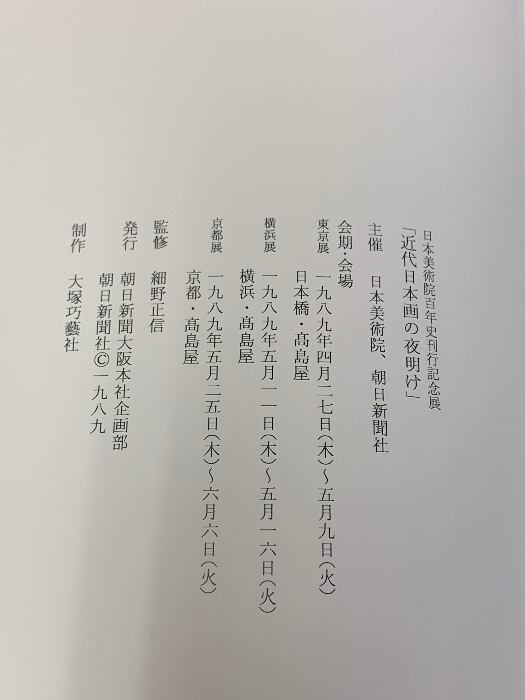 日本美術院百年史刊行記念展
「近代日本画の夜明け」
主催　日本美術院、朝日新聞社
会期・会場
東京展　一九八九年四月二七日(木)～五月九日(火)
日本橋・髙島屋
横浜展　一九八九年五月一一日(木)～五月一六日(火)
横浜・髙島屋
京都展　一九八九年五月二五日(木)～六月六日(火)
京都・髙島屋
監修　細野正信
発行　朝日新聞大阪本社企画部
朝日新聞社©一九八九
制作　大塚巧藝社